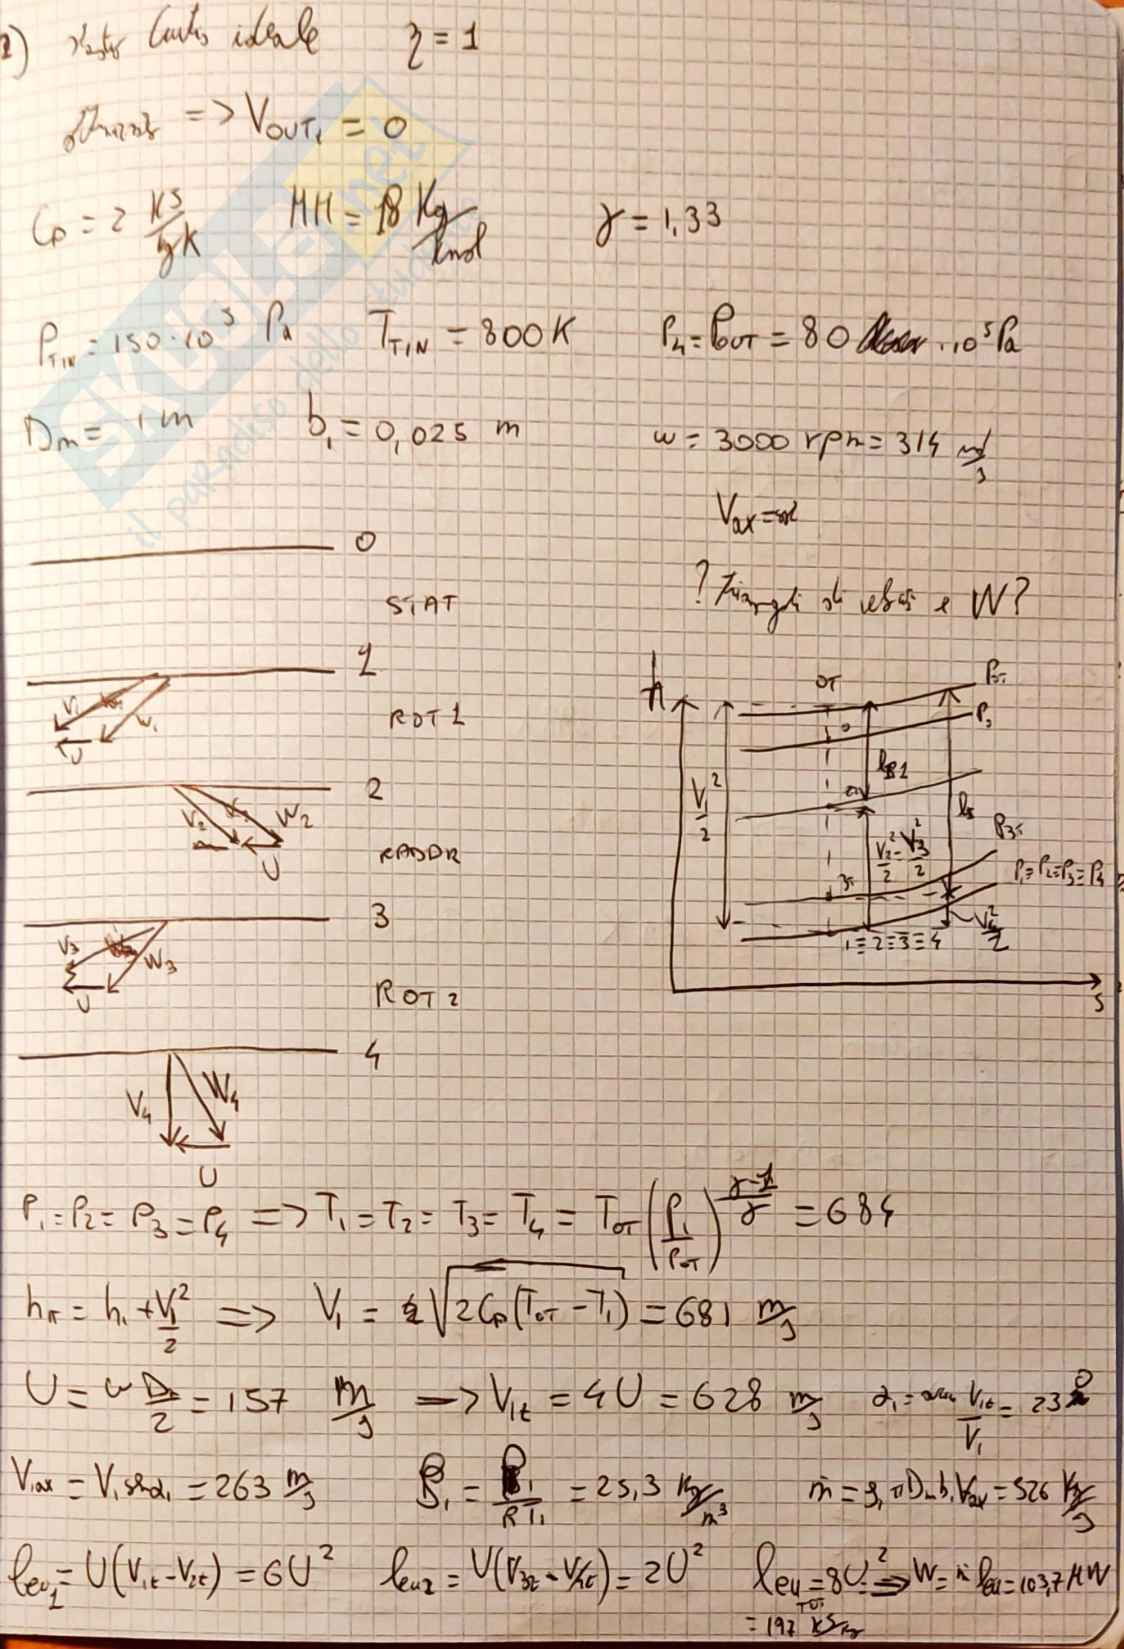 2) ideale η = 1
=> V_OUT₁ = 0
Cp = 2 KJ/kgK MM = 18 Kg/kmol γ = 1,33
P_TIN = 150·10⁵ Pa T_TIN = 800 K P₄ = P_OUT = 80 ·10⁵ Pa
Dm = 1 m b₁ = 0,025 m ω = 3000 rpm = 314
Vax =
0
? Triangoli di velocità e W?
STAT
1
ROT 1
V₁ W₁ U
2
V₂ W₂ U
RADDR
3
V₃ W₃ U
ROT 2
4
V₄ W₄ U
h OT P_0T
P₀
V₁²/2
V₂²/2 - V₃²/2
P_3T
P₁=P₂=P₃=P₄
1≡2≡3≡4 V₄²/2
S
P₁ = P₂ = P₃ = P₄ => T₁ = T₂ = T₃ = T₄ = T_OT (P₁/P_OT)^((γ-1)/γ) = 684
h₁T = h₁ + V₁²/2 => V₁ = √(2Cp(T_OT - T₁)) = 681 m/s
U = ω Dm/2 = 157 m/s => V₁t = 4U = 628 m/s α₁ = V₁t/V₁ = 23°
V₁ax = V₁ sinα₁ = 263 m/s ρ₁ = P₁/RT₁ = 25,3 Kg/m³ ṁ = ρ₁ π Dm b₁ Vax = 526 Kg/s
l_eu1 = U(V₁t - V₂t) = 6U² l_eu2 = U(V₃t - V₄t) = 2U² l_eu TOT = 8U² => W = ṁ l_eu = 103,7 MW
= 197 KJ/Kg